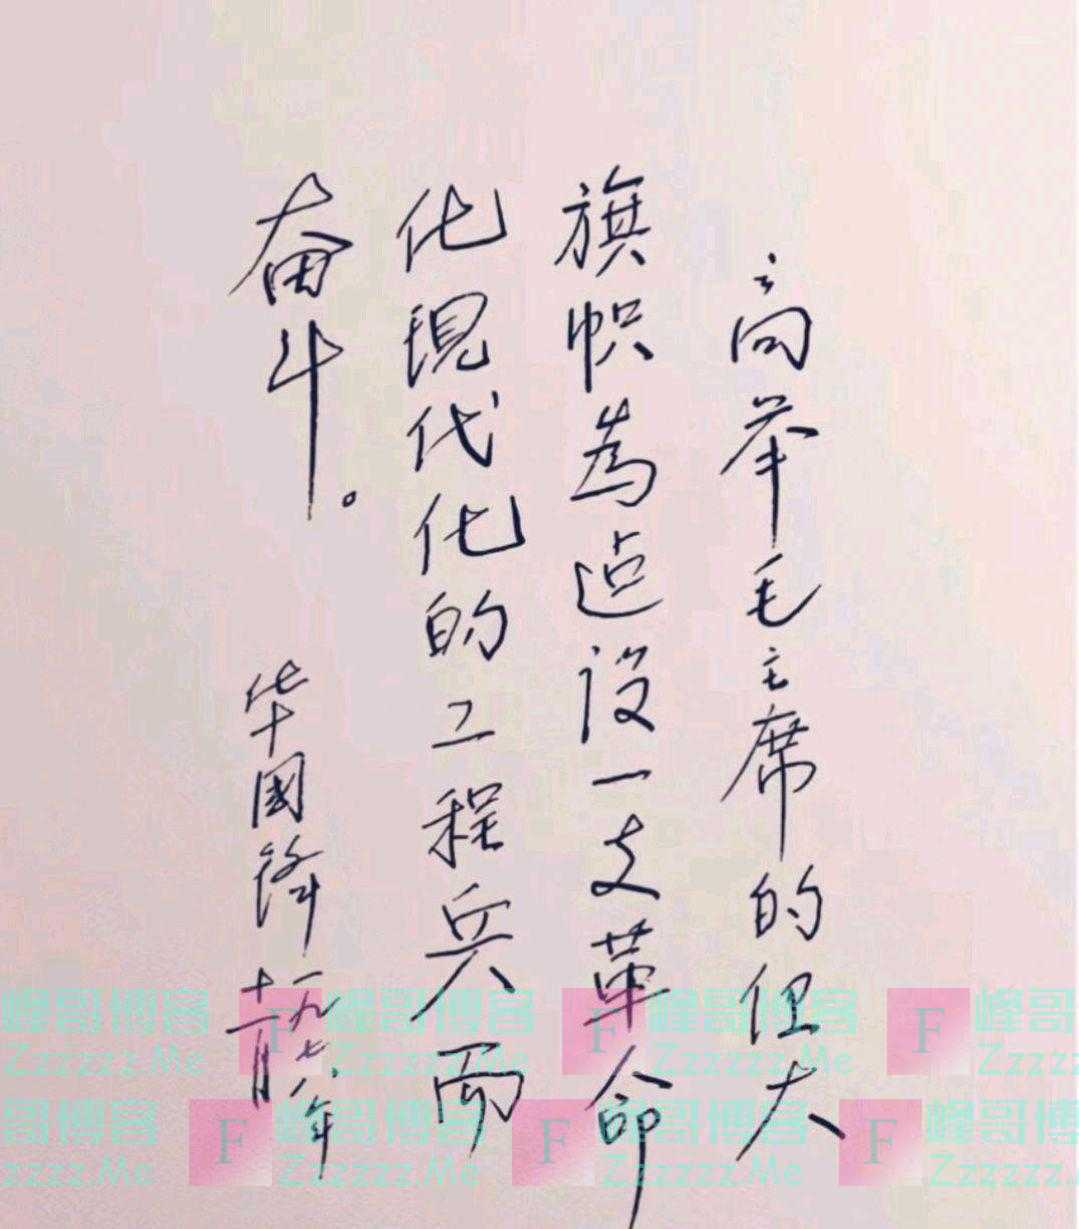 高举毛主席的伟大
旗帜為迠设一支革命
化現代化的工程兵而
奋斗。
华國锋 一九七八年
十一月
峰哥博客 F 峰哥博客 F 峰哥博客 F 峰哥
Zzzzzz.Me Zzzzzz.Me Zzzzzz.Me Zzzzz
哥博客 F 峰哥博客 F 峰哥博客 F 峰哥博
zzzz.Me Zzzzzz.Me Zzzzzz.Me Zzzzzz.